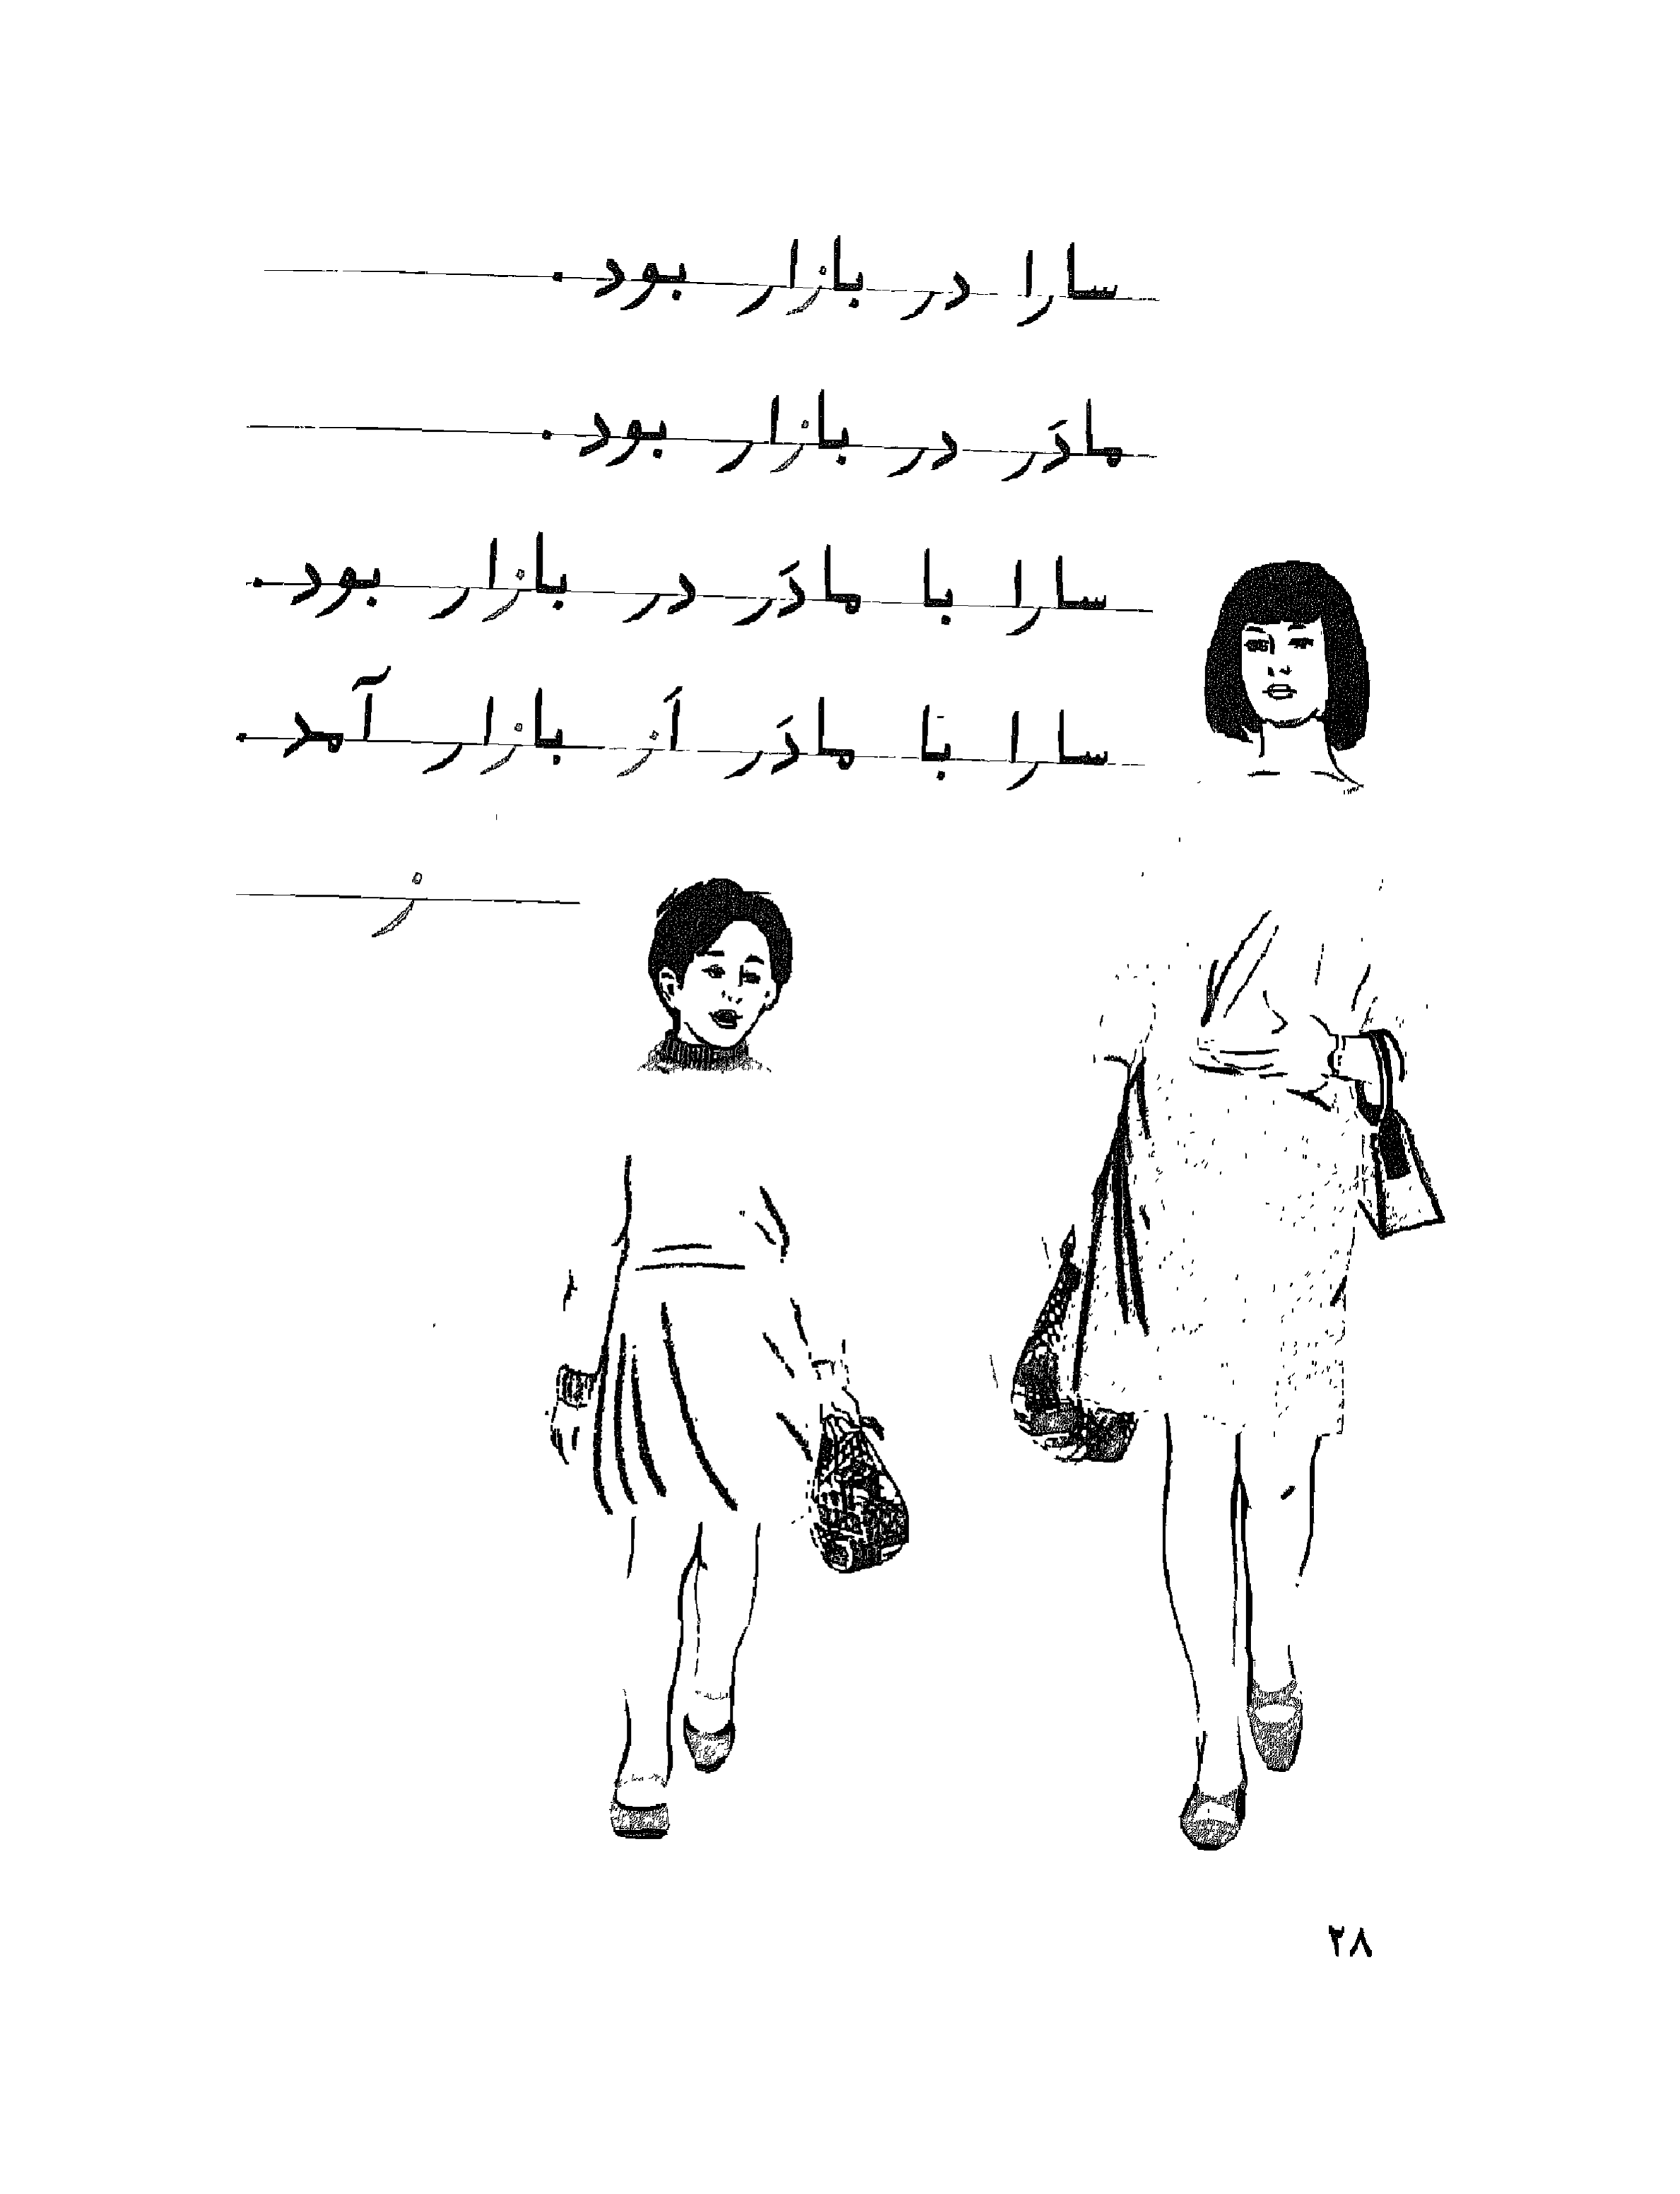 سارا در بازار بود.
مادَر در بازار بود.
سارا با مادَر در بازار بود.
سارا با مادَر اَز بازار آمد.
ز
۲۸